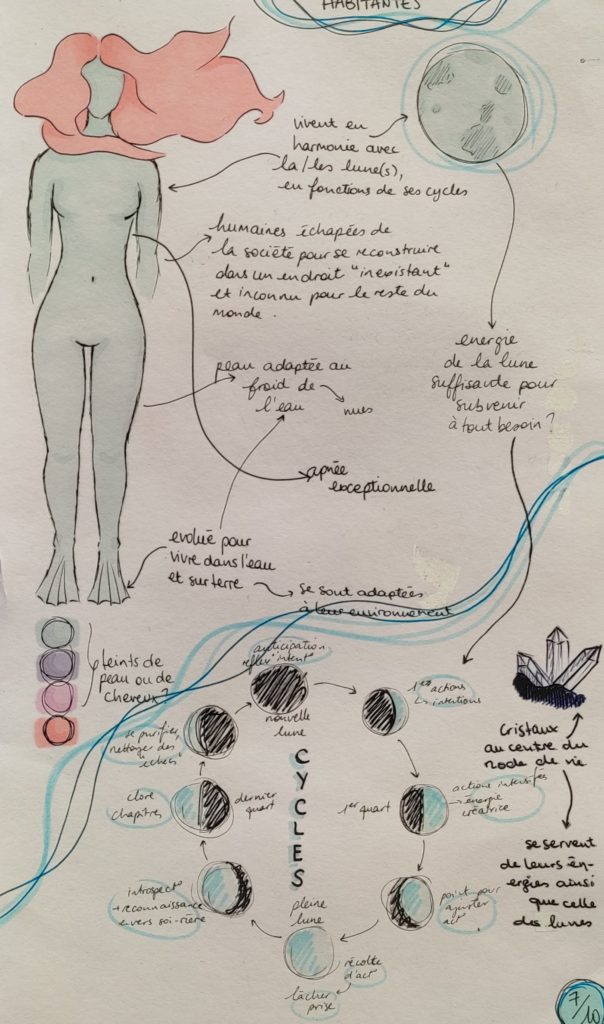 HABITANTES
vivent en
harmonie avec
la/les lune(s),
en fonctions de ses cycles
humaines échapées de
la société pour se reconstruire
dans un endroit "inexistant"
et inconnu pour le reste du
monde.
energie
de la lune
suffisante pour
subvenir
à tout besoin ?
peau adaptée au
froid de
l'eau
nues
apnée
exceptionnelle
evolué pour
vivre dans l'eau
et sur terre
se sont adaptées
à leur environnement
teints de
peau ou de
cheveux ?
CYCLES
anticipation
reflex° intent°
nouvelle
lune
1ères actions
↳ intentions
1er quart
actions intensifées
→ énergie
créatrice
point pour
ajuster
act°
pleine
lune
récolte
d'act°
lâcher
prise
introspect°
+ reconnaissance
envers soi-
clore
chapitres
dernier
quart
se purifier,
nettoyer des
"échecs"
cristaux
au centre du
mode de vie
se servent
de leurs én-
ergies ainsi
que celle
des lunes
7/10